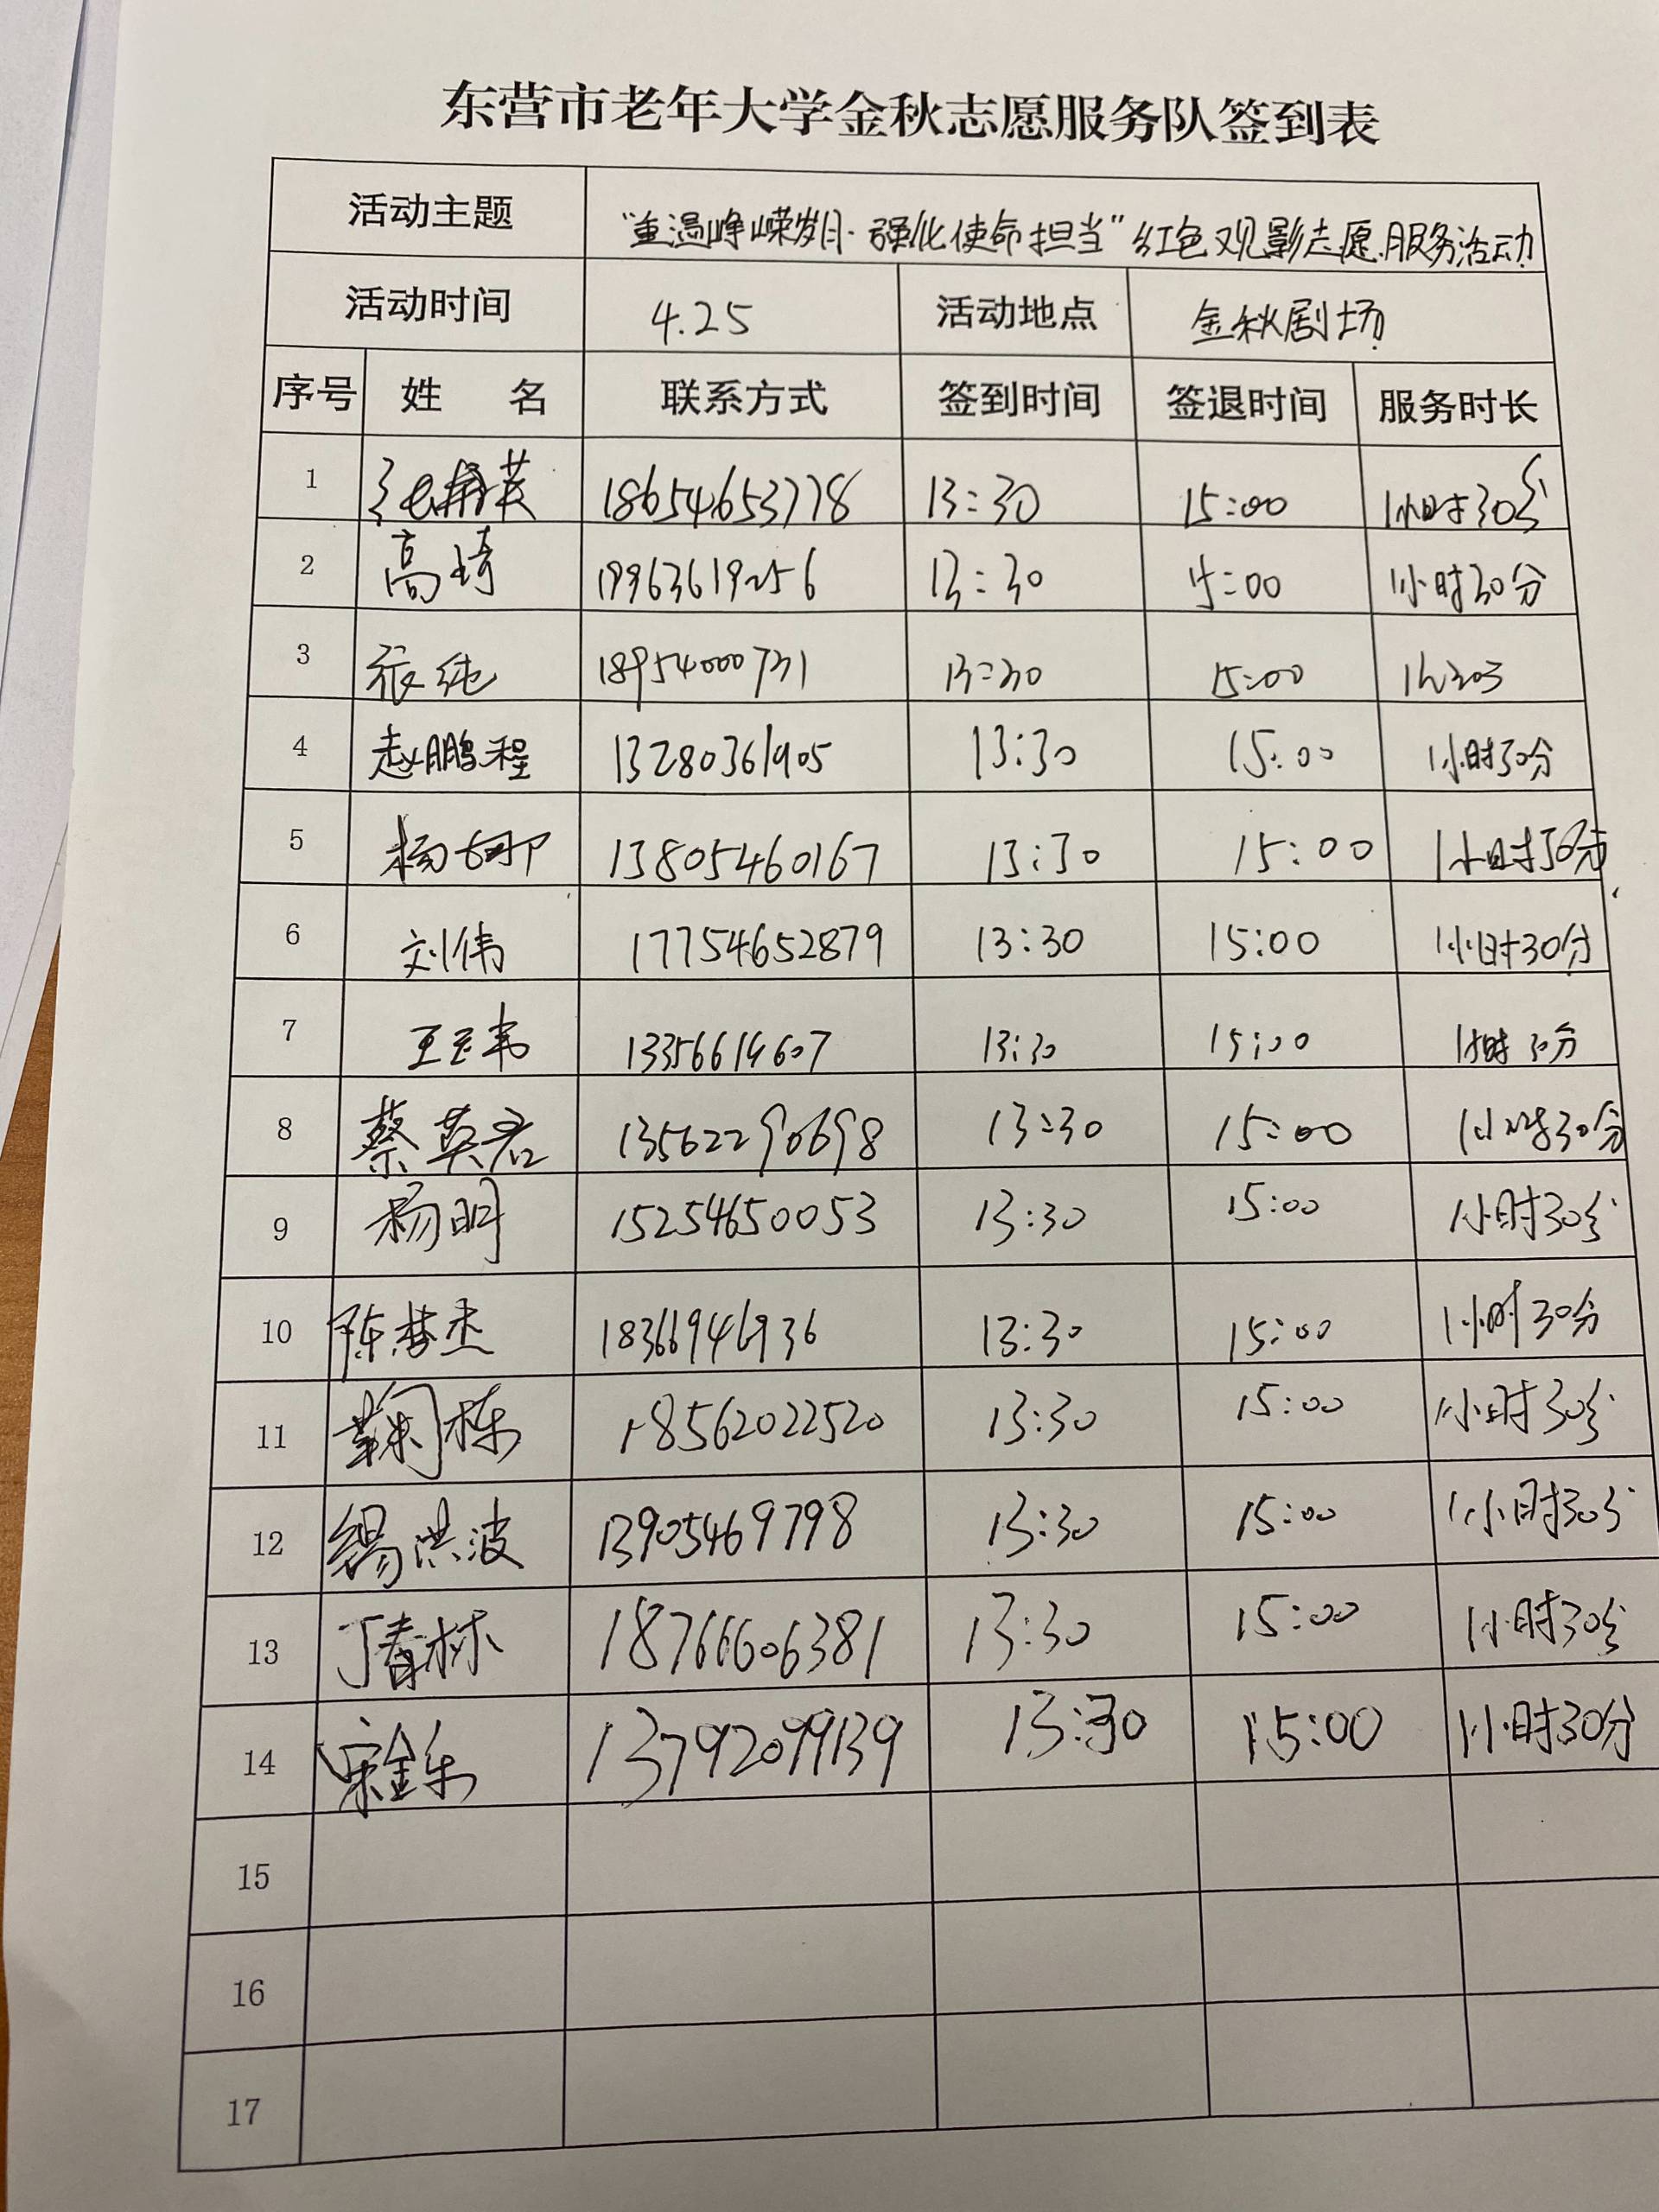 东营市老年大学金秋志愿服务队签到表
活动主题 “重温峥嵘岁月·强化使命担当”红色观影志愿服务活动
活动时间 4.25 活动地点 金秋剧场
序号 姓 名 联系方式 签到时间 签退时间 服务时长
1 18654653778 13:30 15:00 1小时30分
2 高琦 19963619256 13:30 15:00 1小时30分
3 张纯 18954000731 13:30 15:00 1h30分
4 赵鹏程 13280361905 13:30 15:00 1小时30分
5 杨娜 13805460167 13:30 15:00 1小时30分
6 刘伟 17754652879 13:30 15:00 1小时30分
7 13:30 15:00 1小时30分
8 蔡英君 13562290698 13:30 15:00 1小时30分
9 杨明 15254650053 13:30 15:00 1小时30分
10 陈梦杰 18366946936 13:30 15:00 1小时30分
11 鞠栋 18562022520 13:30 15:00 1小时30分
12 洪波 13905469798 13:30 15:00 1小时30分
13 丁春林 18766606381 13:30 15:00 1小时30分
14 宋金乐 13792099139 13:30 15:00 1小时30分
15
16
17